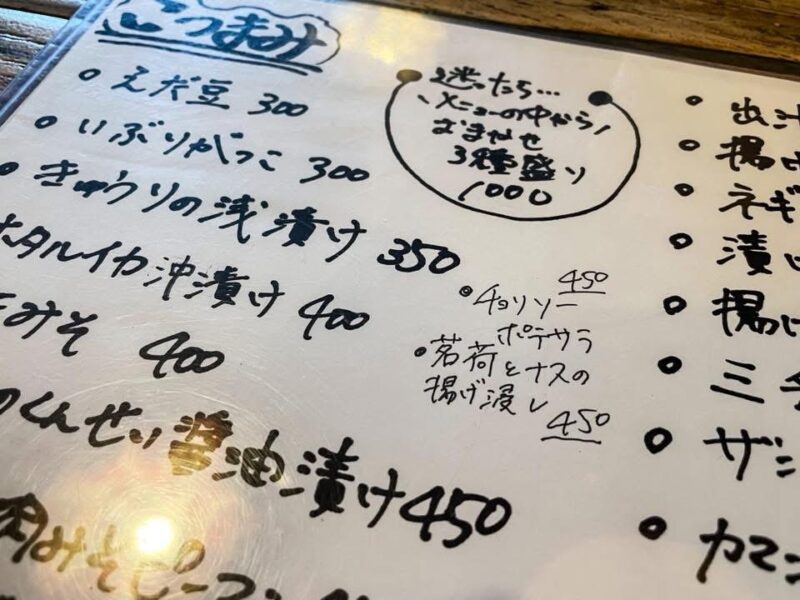 こつまみ
えだ豆 300
いぶりがっこ 300
きゅうりの浅漬け 350
ホタルイカ沖漬け 400
みそ 400
のくんせい醤油漬け 450
肉みそピーマン
迷ったら…
メニューの中から
おまかせ
3種盛り
1000
450
チョリソー
ポテサラ
茗荷とナスの
揚げ浸し
450
出汁
揚げ
ネギ
漬け
揚げ
三
ザン
カマン